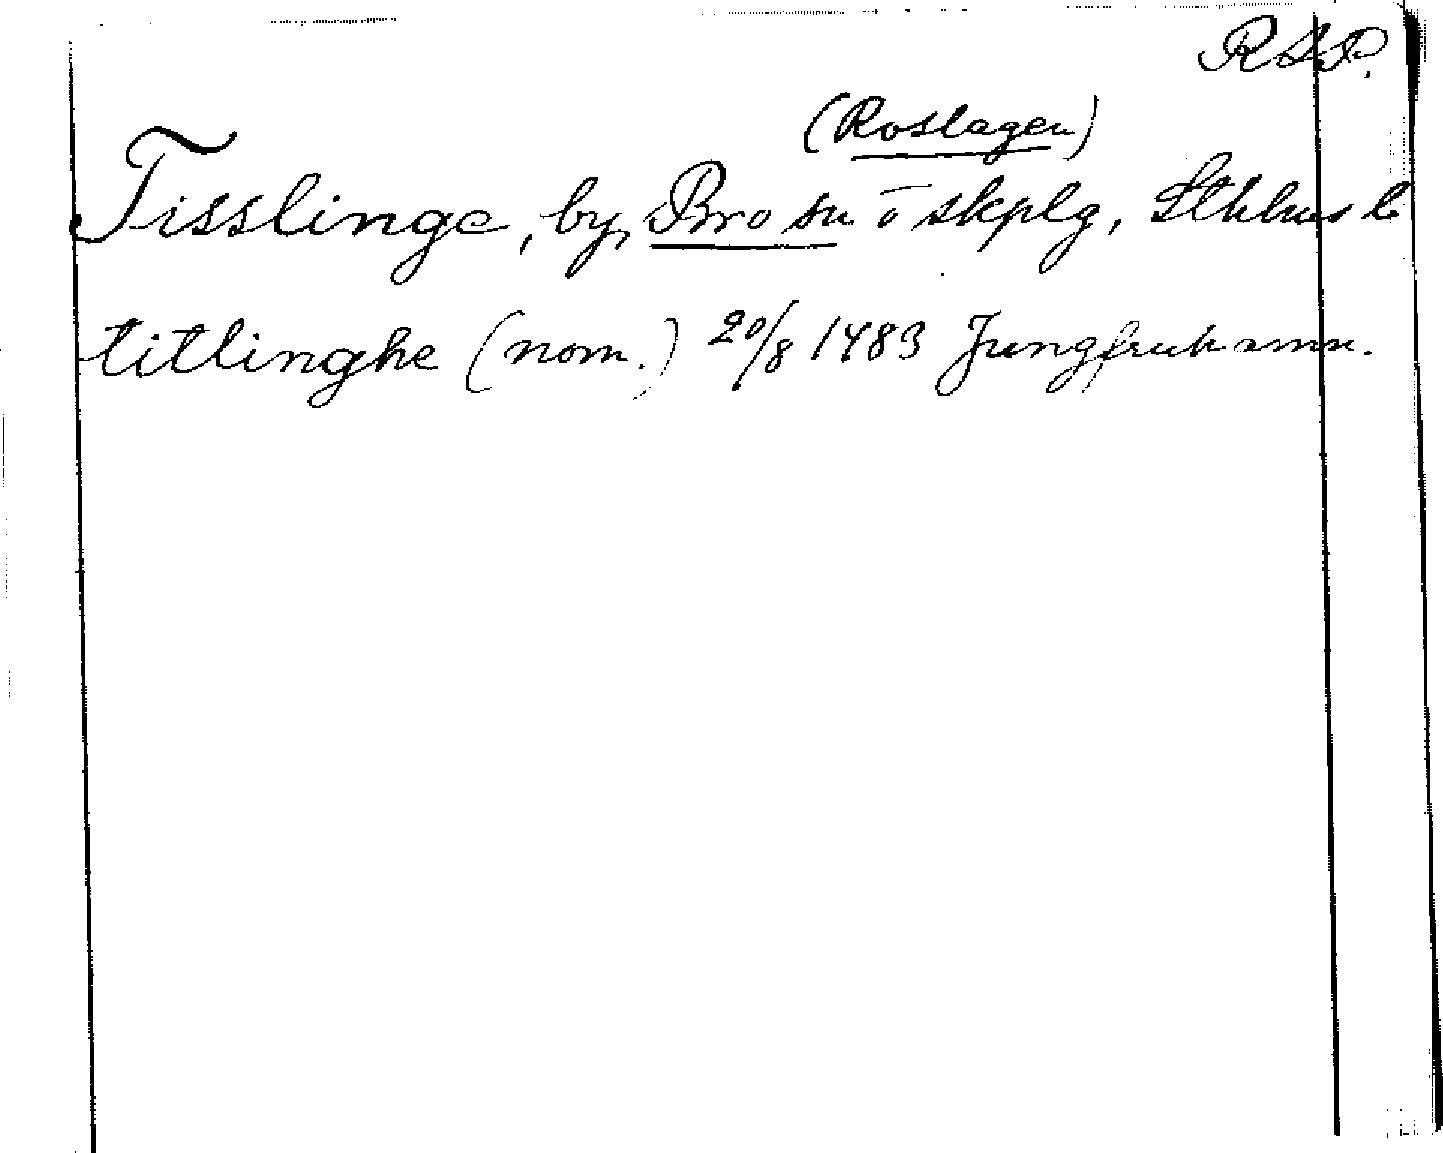 RAP.
(Roslagen)
Tisslinge, by, Bro sn o skplg, Sthlms l.
titlinghe (nom.) 20/8 1483 Jungfruhamn.